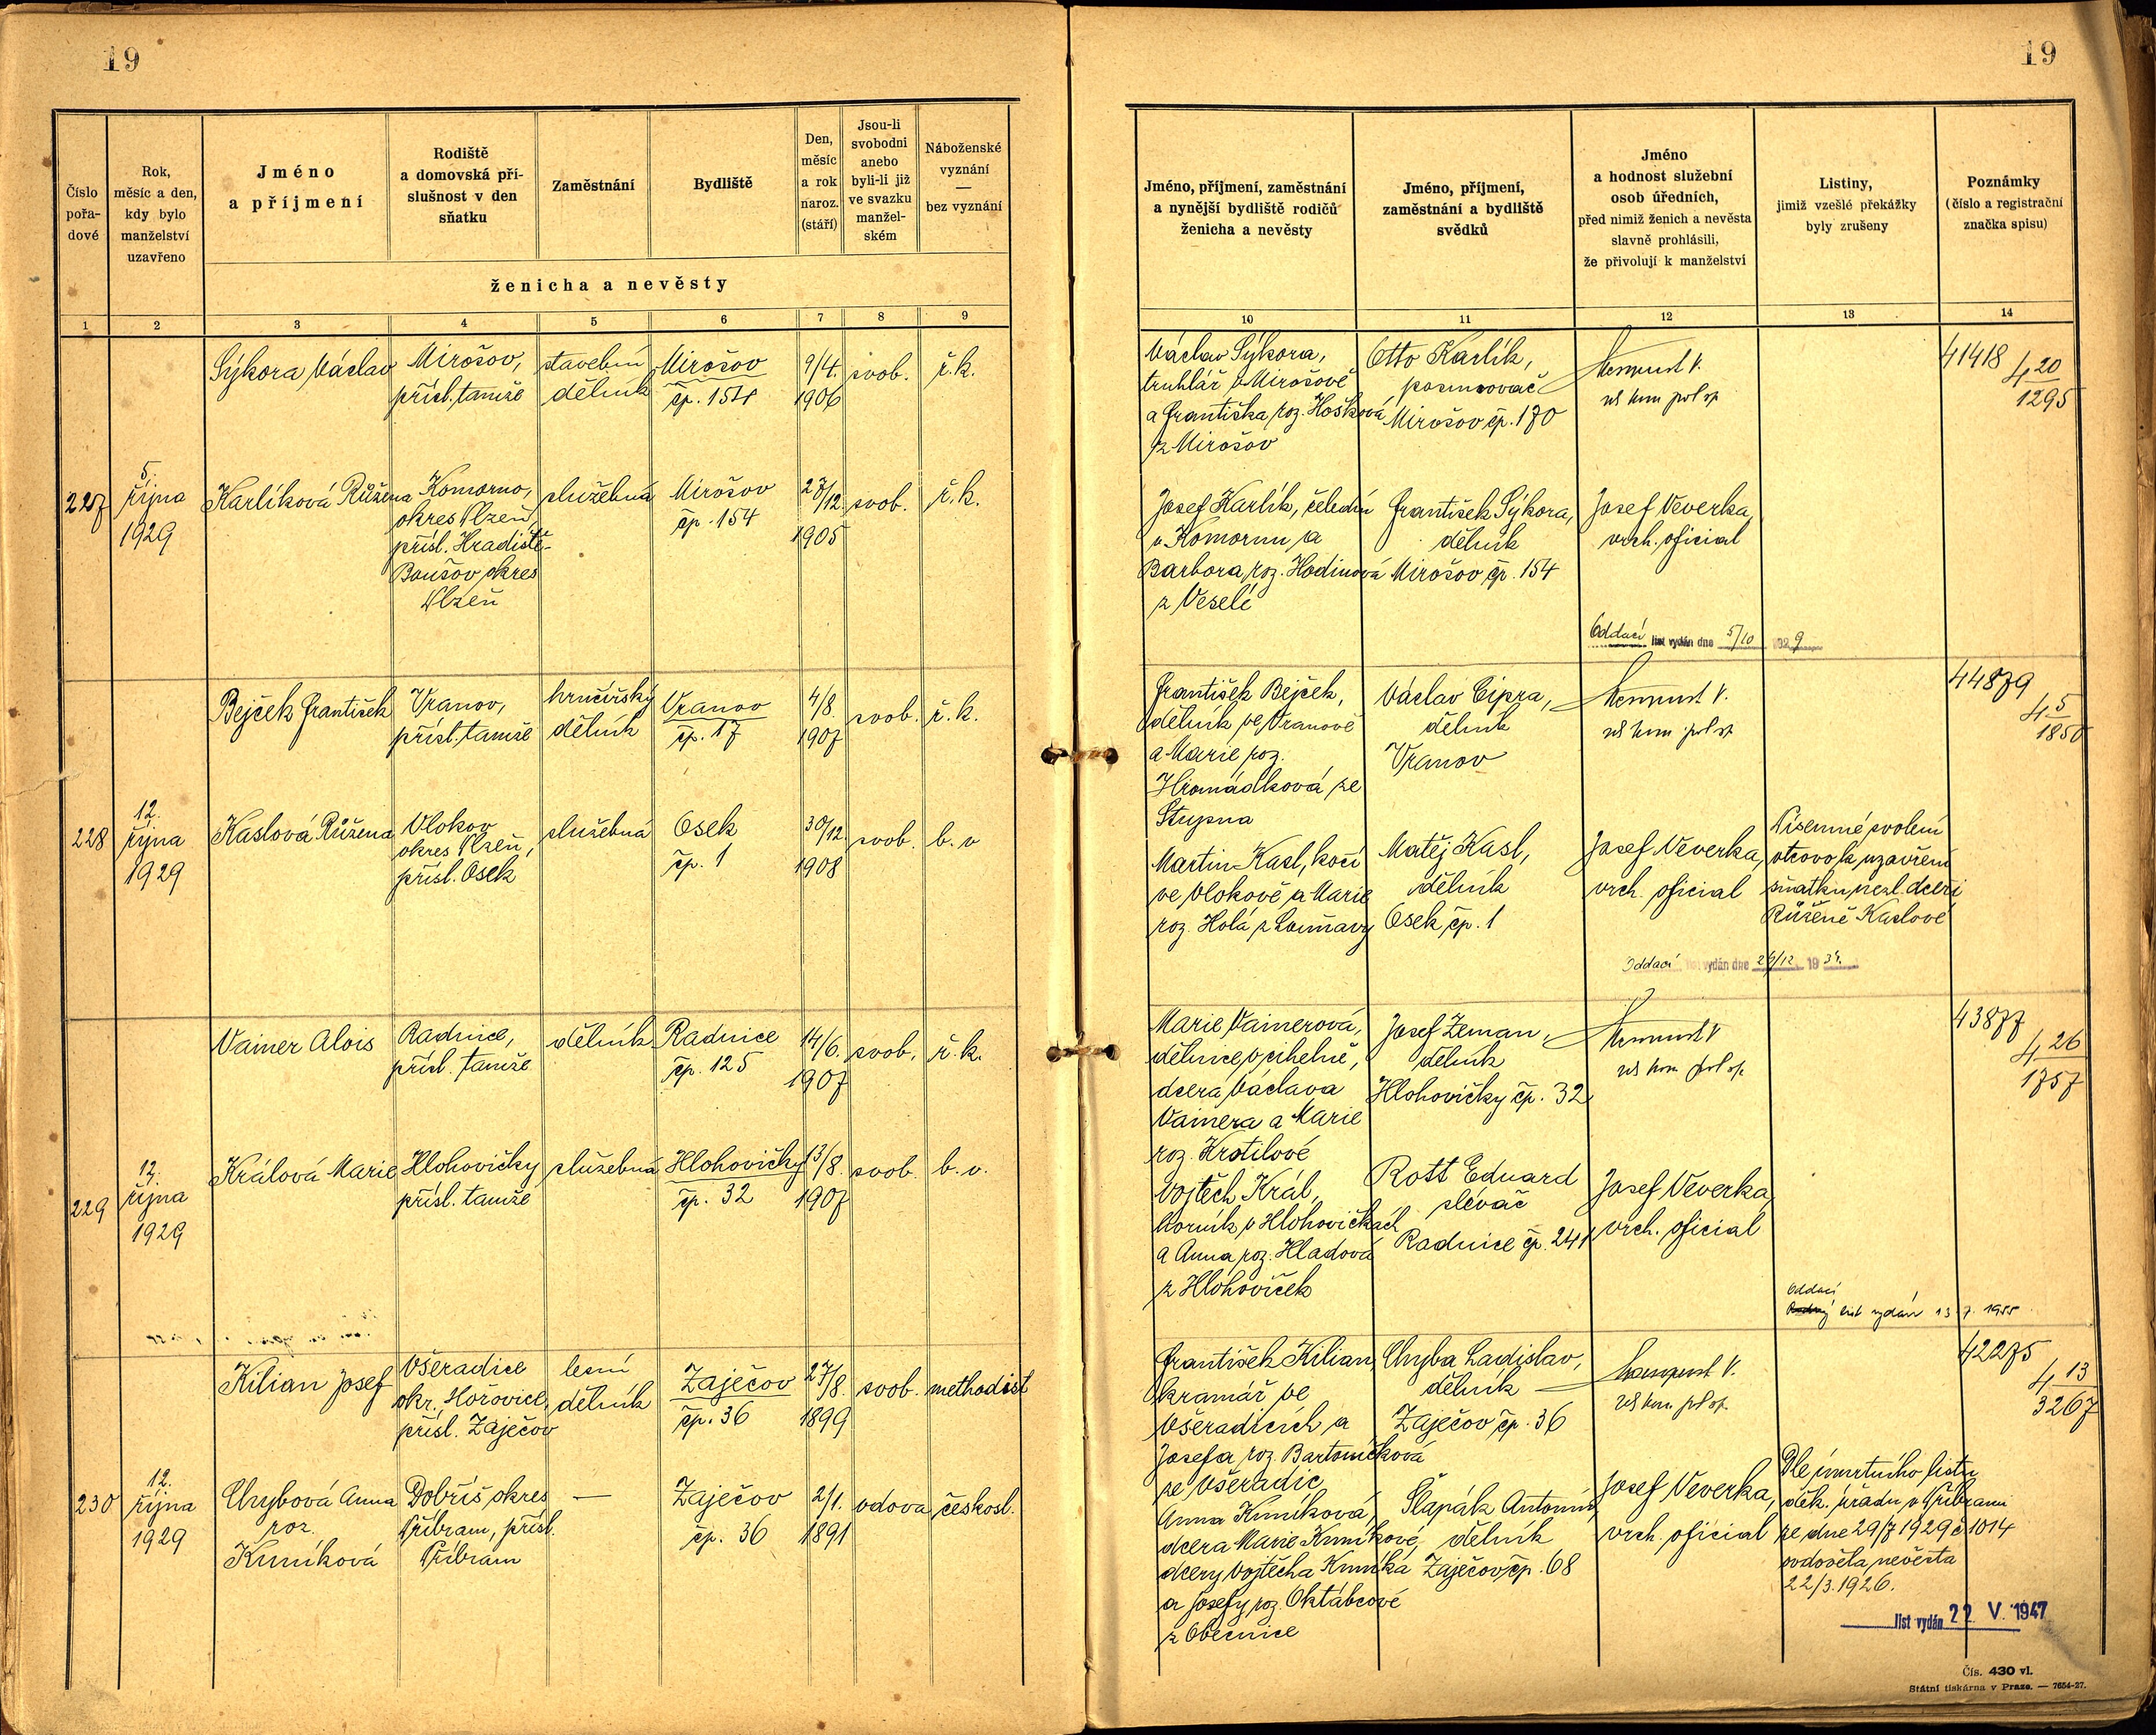 19
19
Číslo
pořa-
dové
Rok,
měsíc a den,
kdy bylo
manželství
uzavřeno
Jméno
a příjmení
Rodiště
a domovská pří-
slušnost v den
sňatku
Zaměstnání
Bydliště
Den,
měsíc
a rok
naroz.
(stáří)
Jsou-li
svobodni
anebo
byli-li již
ve svazku
manžel-
ském
Náboženské
vyznání
—
bez vyznání
ženicha a nevěsty
Jméno, příjmení, zaměstnání
a nynější bydliště rodičů
ženicha a nevěsty
Jméno, příjmení,
zaměstnání a bydliště
svědků
Jméno
a hodnost služební
osob úředních,
před nimiž ženich a nevěsta
slavně prohlásili,
že přivolují k manželství
Listiny,
jimiž vzešlé překážky
byly zrušeny
Poznámky
(číslo a registrační
značka spisu)
1 2 3 4 5 6 7 8 9
10 11 12 13 14
Sýkora Václav
Mirošov,
přísl. tamže
stavební
dělník
Mirošov
čp. 154
9/4.
1906
svob.
ř.k.
Václav Sýkora,
truhlář v Mirošově
a Františka, roz. Hošková
z Mirošov
Otto Karlík,
posunovač
Mirošov čp. 170
41418
4 20
1295
227
5.
října
1929
Karlíková Růžena
Komorno,
okres Plzeň,
přísl. Hradiště-
Boušov okres
Plzeň
služebná
Mirošov
čp. 154
27/12.
1905
svob.
ř.k.
Josef Karlík, čeledín
v Komornu, a
Barbora, roz. Hodinová
z Veselé
František Sýkora,
dělník
Mirošov čp. 154
Josef Veverka,
vrch. oficial
Oddací list vydán dne 5/10 1929
Bejček František
Vranov,
přísl. tamže
hrnčířský
dělník
Vranov
čp. 17
4/8.
1907
svob.
ř.k.
František Bejček,
dělník ve Vranově
a Marie roz.
Hromádková, ze
Stupna
Václav Cipra,
dělník
Vranov
44879
4 5
1850
228
12.
října
1929
Kaslová Růžena
Vlokov
okres Plzeň,
přísl. Osek
služebná
Osek
čp. 1
30/12.
1908
svob.
b.v
Martin Kasl, kočí
ve Vlokově a Marie
roz. Holá z
Matěj Kasl,
dělník
Osek čp. 1
Josef Veverka,
vrch. oficial
Písemné svolení
otcovo k uzavření
sňatku nezl. dceři
Růženě Kaslové
Oddací list vydán dne 29/12 1934.
Vainer Alois
Radnice,
přísl. tamže
dělník
Radnice
čp. 125
14/6.
1907
svob.
ř.k.
Marie Vainerová,
dělnice v cihelně,
dcera Václava
Vainera a Marie
roz. Krotilové
Josef Zeman,
dělník
Hlohovičky čp. 32
43877
4 26
1757
229
12.
října
1929
Králová Marie
Hlohovičky
přísl. tamže
služebná
Hlohovičky
čp. 32
13/8.
1907
svob.
b.v.
Vojtěch Král,
horník v Hlohovičkách
a Anna roz. Hladová
z Hlohoviček
Rott Eduard
slévač
Radnice čp. 241
Josef Veverka,
vrch. oficial
Oddací
list vydán 13.7.1955
Kilian Josef
Všeradice
okr. Hořovice,
přísl. Zaječov
lesní
dělník
Zaječov
čp. 36
27/8.
1899
svob.
methodist
František Kilian,
kramář ve
Všeradicích a
Josefa roz. Bartoníčková
ze Všeradic
Chyba Ladislav,
dělník
Zaječov čp. 36
42275
4 13
3267
230
12.
října
1929
Chybová Anna
roz.
Kuníková
Dobříš okres
Příbram, přísl.
Příbram
—
Zaječov
čp. 36
2/1.
1891
vdova
českosl.
Anna Kuníková,
dcera Marie Kuníkové,
dcery Vojtěcha Kuníka
a Josefy roz. Oktábcové
z Obecnice
Šlapák Antonín,
dělník
Zaječov čp. 68
Josef Veverka,
vrch. oficial
Dle úmrtního listu
děk. úřadu v Příbrami
ze dne 29/7 1929 č 1014
ovdověla nevěsta
22/3.1926.
list vydán 22 V. 1947
Čís. 430 vl.
Státní tiskárna v Praze. — 7654-27.